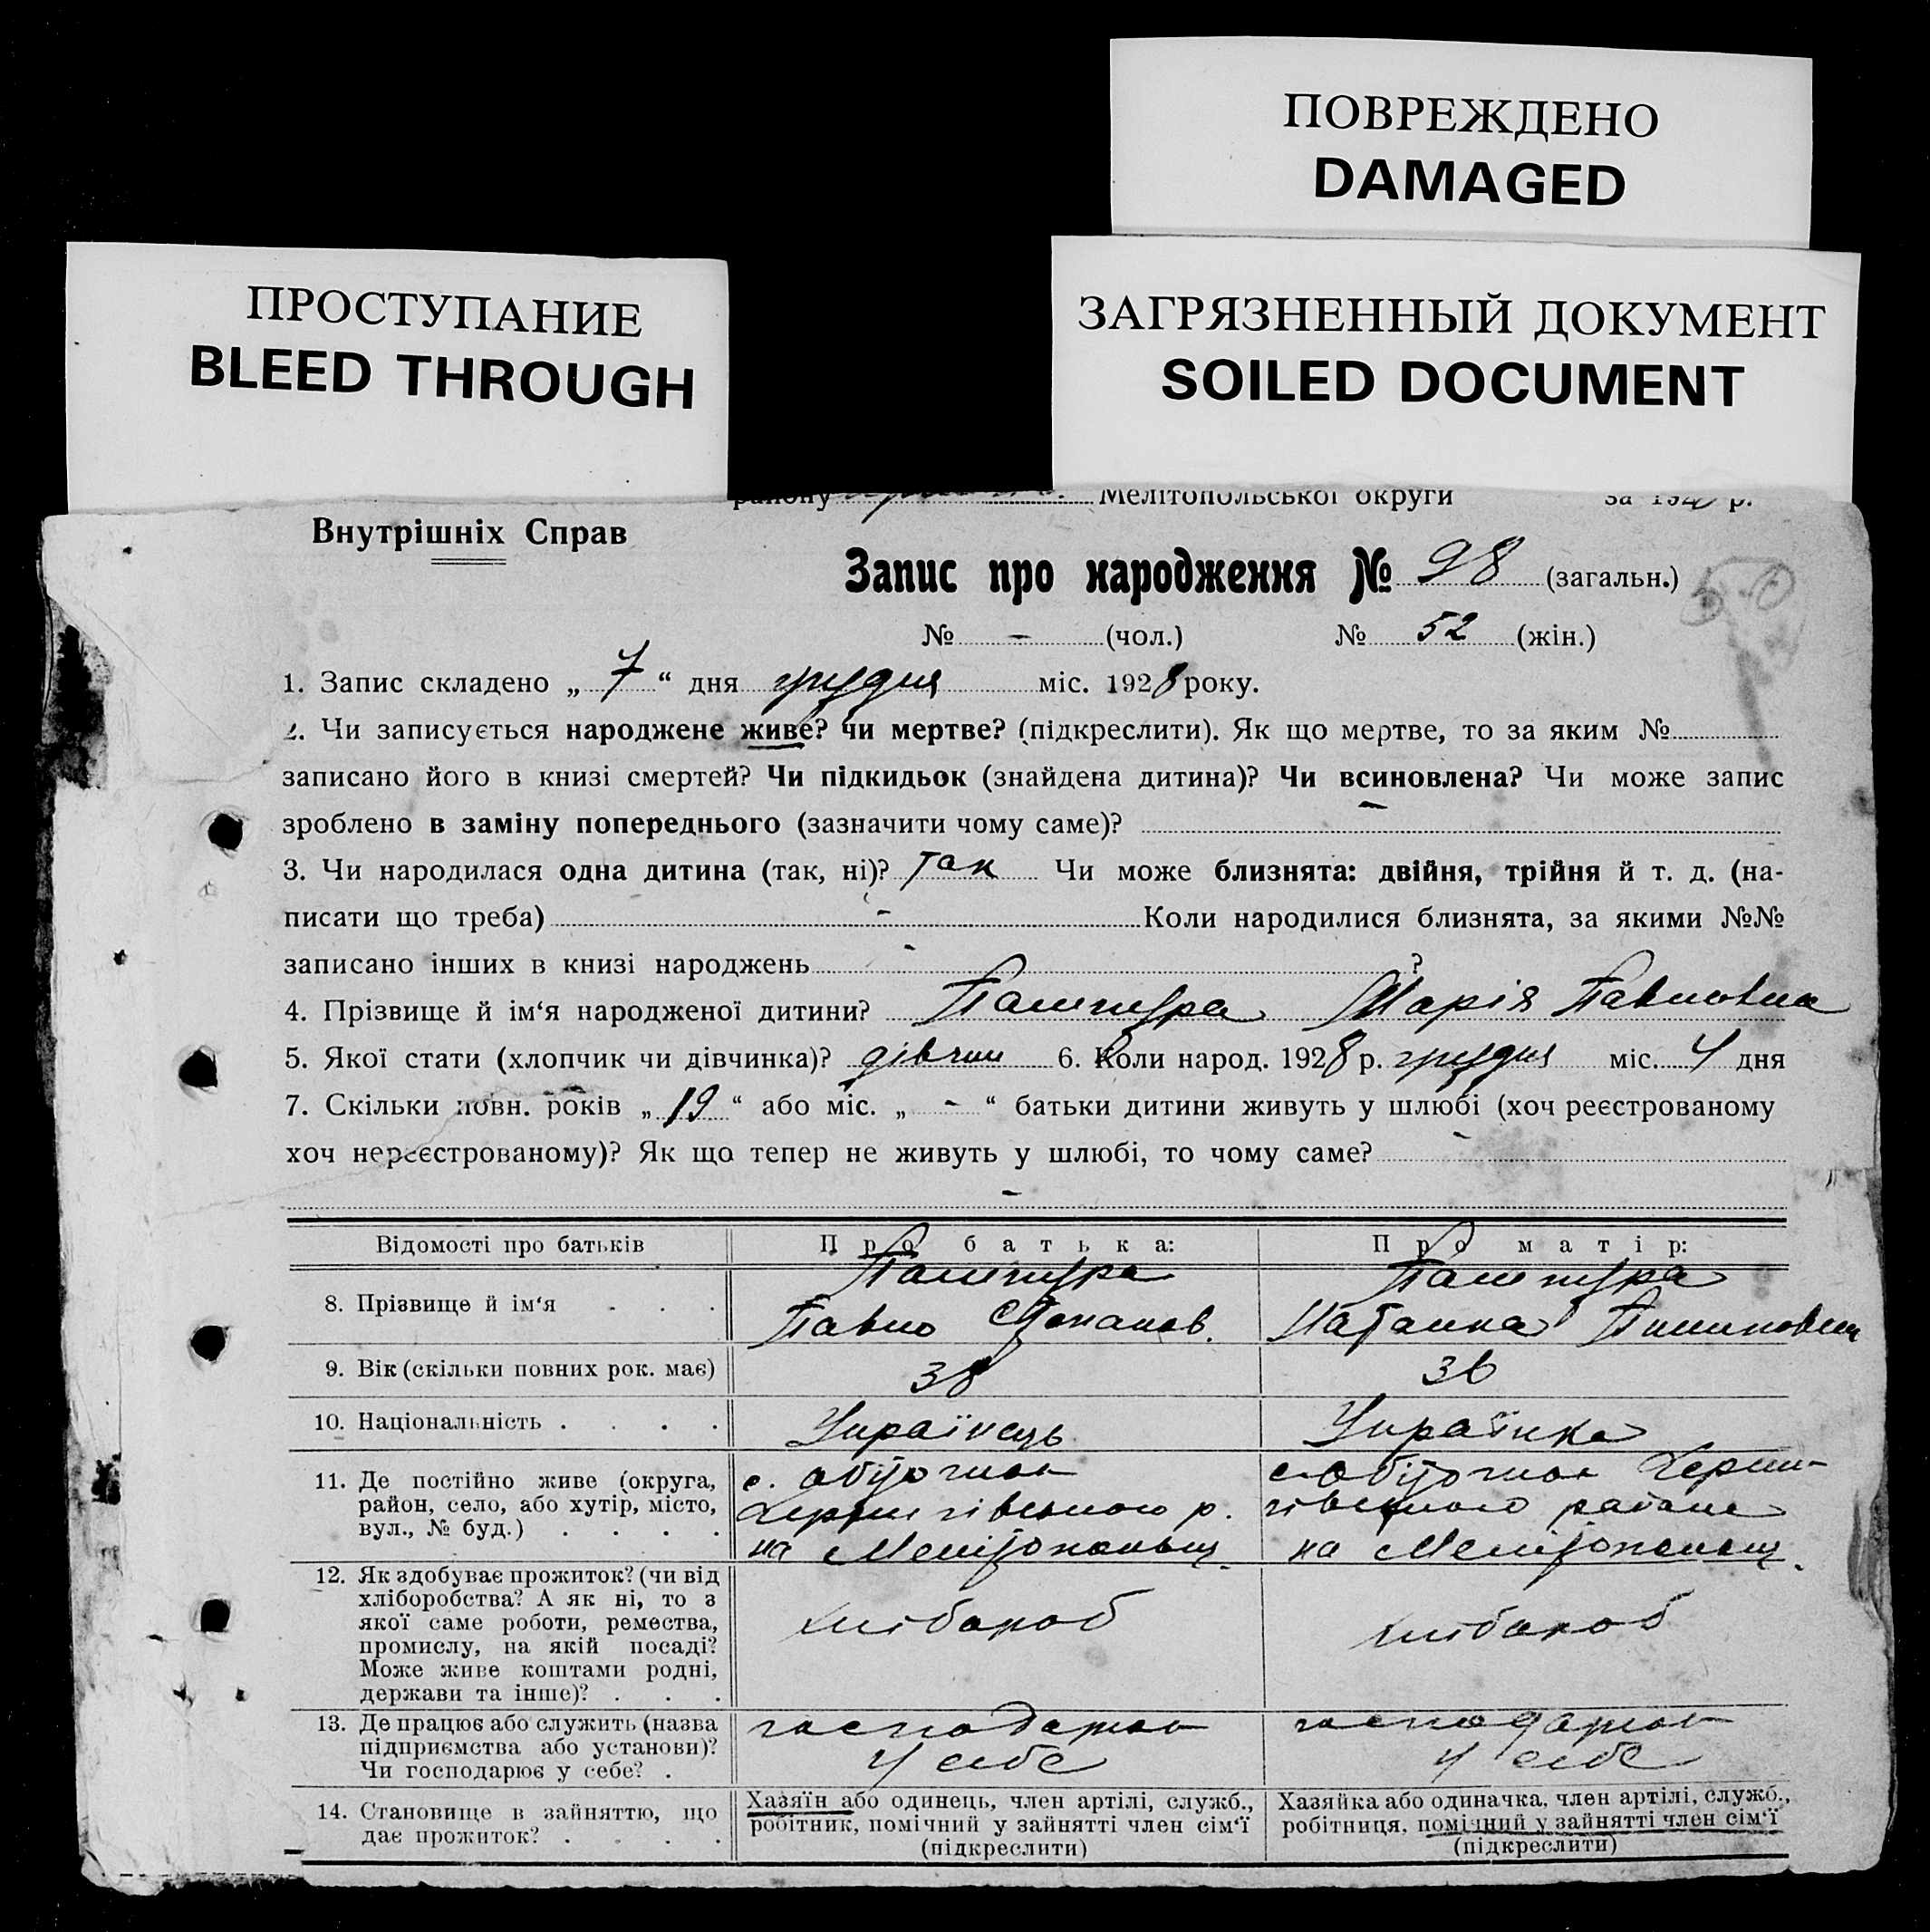 ПОВРЕЖДЕНО
DAMAGED
ПРОСТУПАНИЕ
BLEED THROUGH
ЗАГРЯЗНЕННЫЙ ДОКУМЕНТ
SOILED DOCUMENT
району Мелітопольської округи за 192 р.
Внутрішніх Справ
Запис про народження № 98 (загальн.)
№ - (чол.) № 52 (жін.)
1. Запис складено „ 7 “ дня грудня міс. 1928 року.
2. Чи записується народжене живе? чи мертве? (підкреслити). Як що мертве, то за яким №
записано його в книзі смертей? Чи підкидьок (знайдена дитина)? Чи всиновлена? Чи може запис
зроблено в заміну попереднього (зазначити чому саме)? -
3. Чи народилася одна дитина (так, ні)? так Чи може близнята: двійня, трійня й т. д. (на-
писати що треба) - Коли народилися близнята, за якими №№
записано інших в книзі народжень - ?
4. Прізвище й ім‘я народженої дитини? Марія Павловна
5. Якої стати (хлопчик чи дівчинка)? дівчин 6. Коли народ. 1928 р. грудня міс. 4 дня
7. Скільки повн. років „ 19 “ або міс. „ - “ батьки дитини живуть у шлюбі (хоч реєстрованому
хоч нереєстрованому)? Як що тепер не живуть у шлюбі, то чому саме? -
-
Відомості про батьків
Про батька:
Про матір:
8. Прізвище й ім‘я . . .
Павло Степанов.
9. Вік (скільки повних рок. має)
38
36
10. Національність . . . .
Українець
Українка
11. Де постійно живе (округа,
район, село, або хутір, місто,
вул., № буд.) . . . .
с. Обіточне
Чернигівського р.
на Мелітопольщ.
с. Обіточне Черни-
гівського района
на Мелітопольщ.
12. Як здобуває прожиток? (чи від
хліборобства? А як ні, то з
якої саме роботи, ремества,
промислу, на якій посаді?
Може живе коштами родні,
держави та інше)? . . .
хлібороб
хлібороб
13. Де працює або служить (назва
підприємства або установи)?
Чи господарює у себе? .
господарює
у себе
господарює
у себе
14. Становище в зайняттю, що
дає прожиток? . . . .
Хазяїн або одинець, член артілі, служб.,
робітник, помічний у зайнятті член сім‘ї
(підкреслити)
Хазяйка або одиначка, член артілі, служб.,
робітниця, помічний у зайнятті член сім‘ї
(підкреслити)